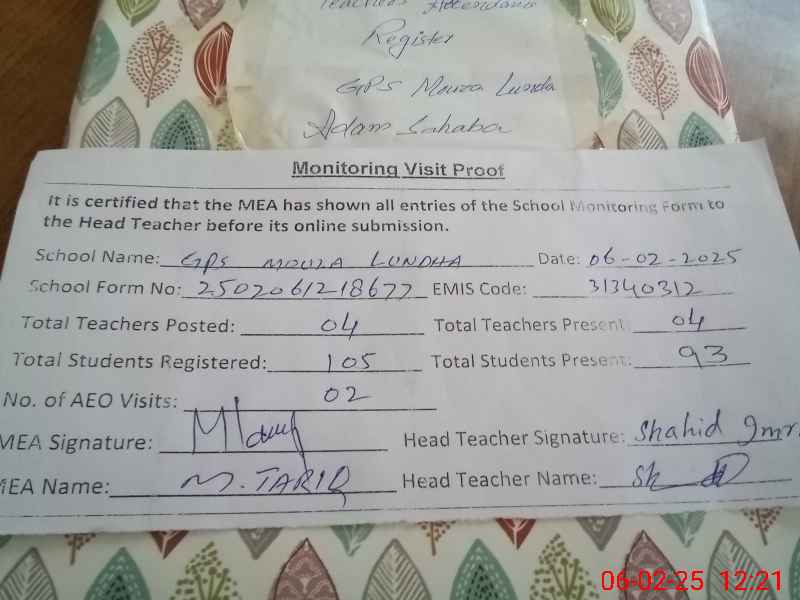 Teachers Attendance
Register
GPS Mouza Lunda
Adam Sahaba
Monitoring Visit Proof
It is certified that the MEA has shown all entries of the School Monitoring Form to
the Head Teacher before its online submission.
School Name: GPS MOUZA LUNDHA Date: 06-02-2025
School Form No: 2502061218677 EMIS Code: 31340312
Total Teachers Posted: 04 Total Teachers Present: 04
Total Students Registered: 105 Total Students Present: 93
No. of AEO Visits: 02
MEA Signature: Head Teacher Signature: Shahid Imr
MEA Name: M. TARIQ Head Teacher Name:
06-02-25 12:21